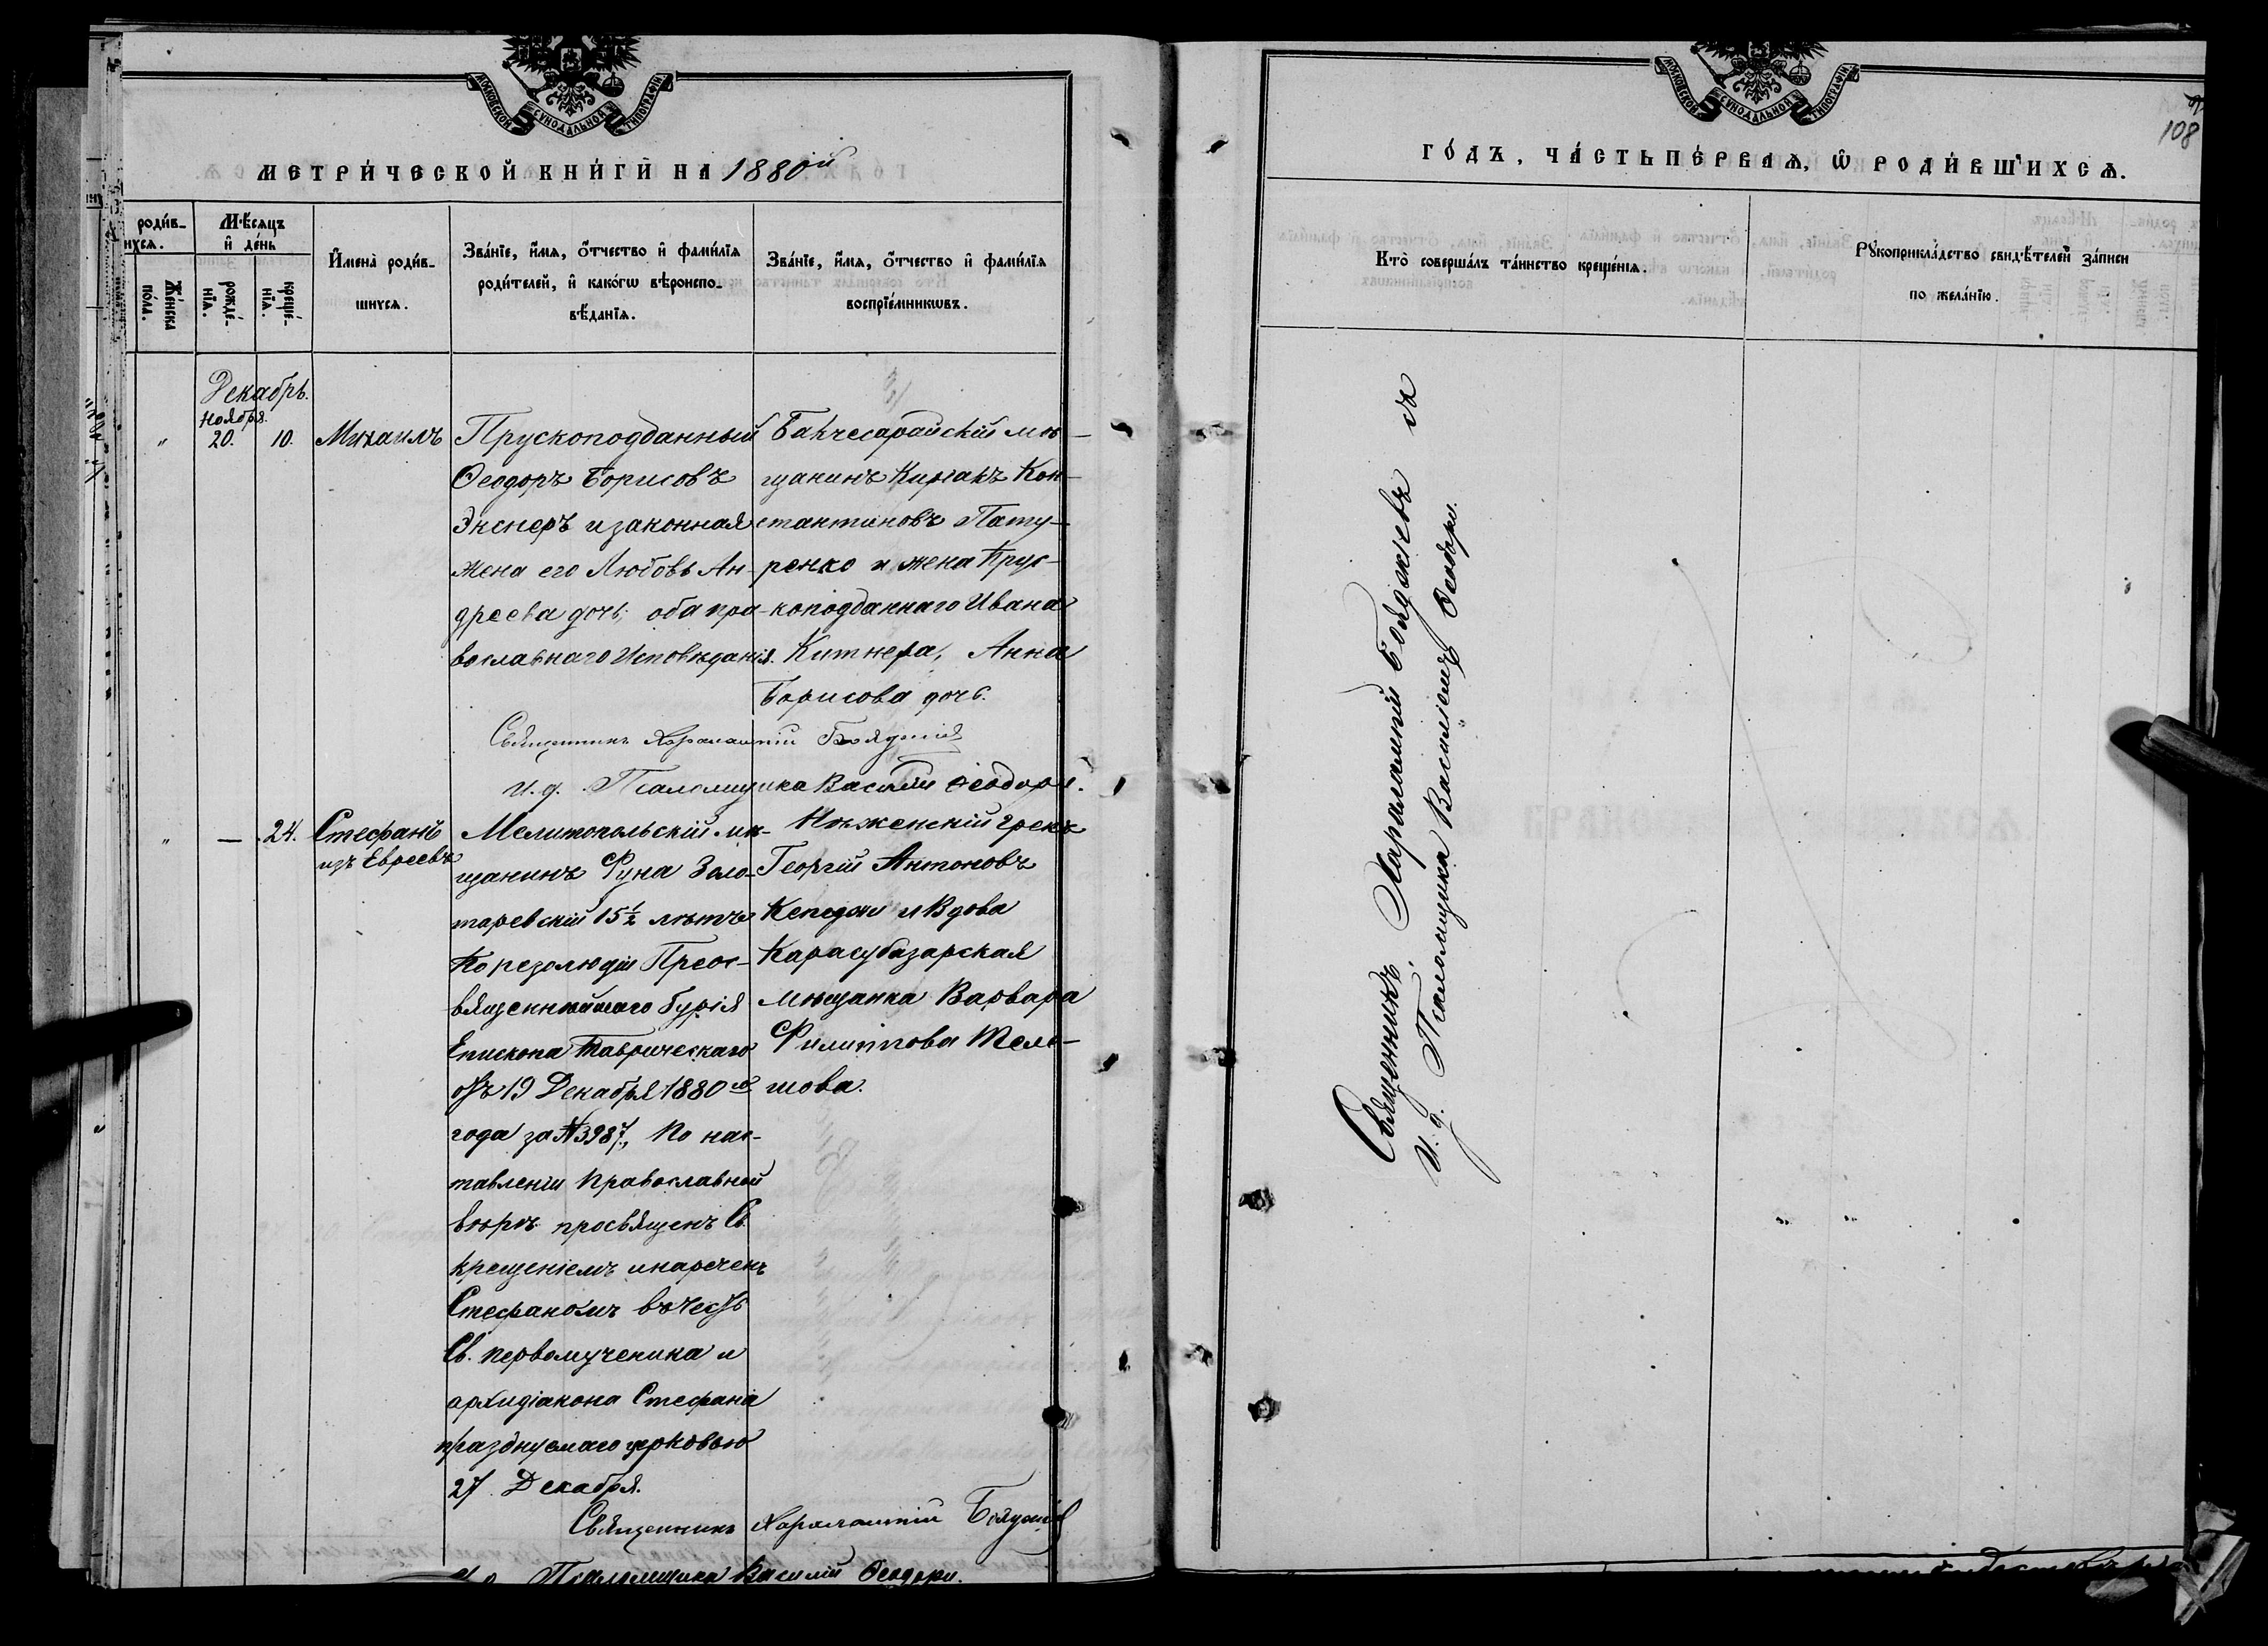 МОСКОВСКОЙ СУНОДАЛЬНОЙ ТИПОГРАФІИ
МЕТРИ́ЧЕСКОЙ КНИ́ГИ НА 1880ій
роди́в-
шихся.
Же́нска по́ла.
Мѣ́сяцъ и де́нь
рожде́-нїя.
креще́-нїя.
И́мена̀ роди́в-
шихся.
Зва́нїе, и́мя, ѻ҆́тчество и фами́лїя
роди́телей, и како́гѡ вѣроиспо-
вѣ́данїя.
Зва́нїе, и́мя, ѻ҆́тчество и фами́лїя
воспрїе́мникѡвъ.
Декабрь.
Ноября.
" 20. 10. Михаилъ
Прускоподданный
Ѳеодоръ Борисовъ
Экснеръ и законная
жена его Любовь Ан-
дреева дочь; оба пра-
вославнаго Исповѣданія.
Бакчесарайскій мѣ-
щанинъ Киріакъ Кон-
стантиновъ Пату-
ренко и жена Прус-
коподданнаго Ивана
Китнера, Анна
Борисова дочь.
Священникъ Харалампій
И. д. Псаломщика Василій Ѳеодори.
" — 24. Стефанъ
изъ Евреевъ
Мелитопольскій мѣ-
щанинъ Фуна Золо-
таревскій 15½ лѣтъ
По резолюціи Преос-
вященнѣйшаго Гурія
Епископа Таврическаго
отъ 19 Декабря 1880го
года за № 3987, По нас-
тавленіи Православной
вѣрѣ просвященъ Св.
крещеніемъ и нареченъ
Стефаномъ въ честь
Св. Первомученика и
архидіакона Стефана
празднуемаго церковью
27 Декабря.
Нѣженскій Грекъ
Георгій Антоновъ
Кепеджи и Вдова
Карасубазарская
мѣщанка Варвара
Филиппова Теле-
шова.
Священникъ Харалампій
И. д. Псаломщика Василій Ѳеодори.
МОСКОВСКОЙ СУНОДАЛЬНОЙ ТИПОГРАФІИ
108
ГО́ДЪ, ЧА́СТЬ ПЕ́РВАЯ, Ѡ҆ РОДИ́ВШИХСЯ.
Кто̀ соверша́лъ та́инство креще́нїя.
Рꙋкоприкла́дство свидѣ́телей за́писи
по жела́нїю.
Священникъ Харалампій Бояджіевъ съ
И. д. Псаломщика Василіемъ Ѳеодори.